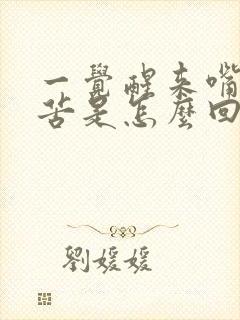 一覺醒來嘴
苦是怎麼回
劉媛媛